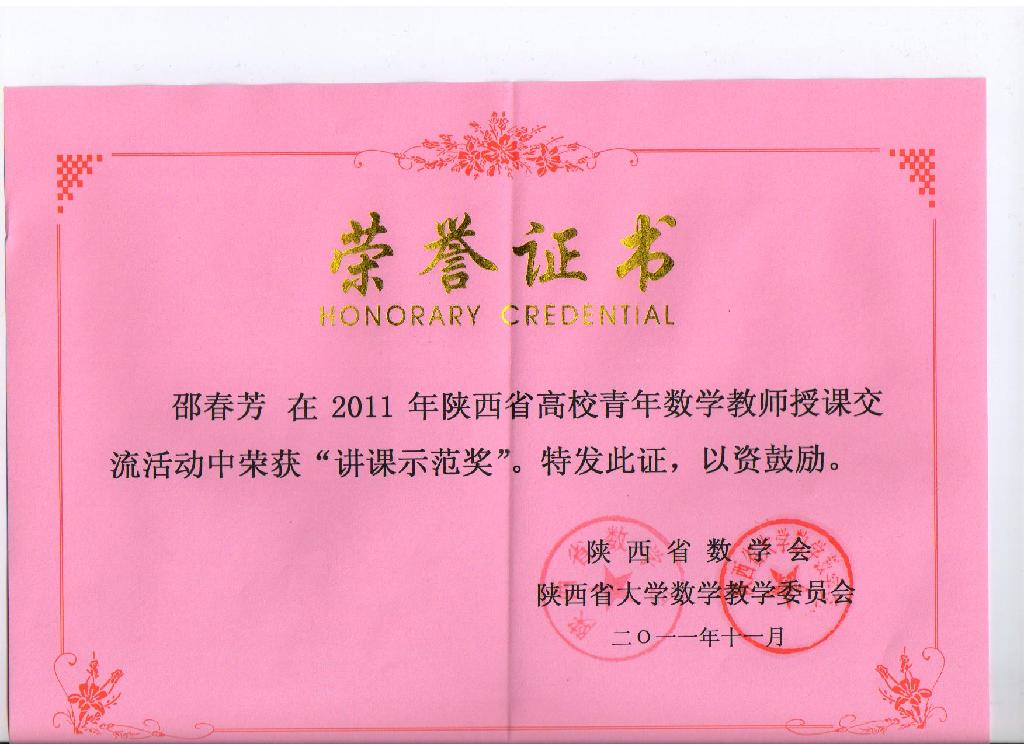 荣誉证书
HONORARY CREDENTIAL
邵春芳 在 2011 年陕西省高校青年数学教师授课交
流活动中荣获“讲课示范奖”。特发此证，以资鼓励。
陕西省数学会
陕西省大学数学教学委员会
二〇一一年十一月